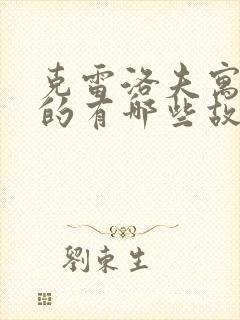 克雷洛夫寓
的有哪些故
劉東生